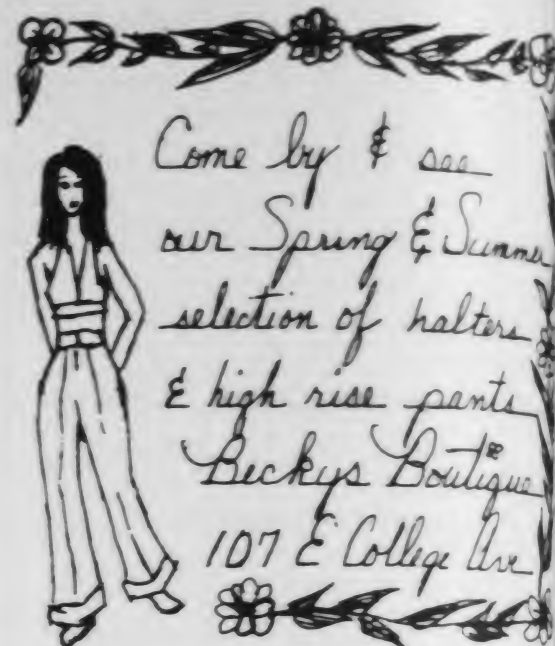 Come by & see
our Spring & Summer
selection of halters
& high rise pants
Beckys Boutique
107 E College Ave